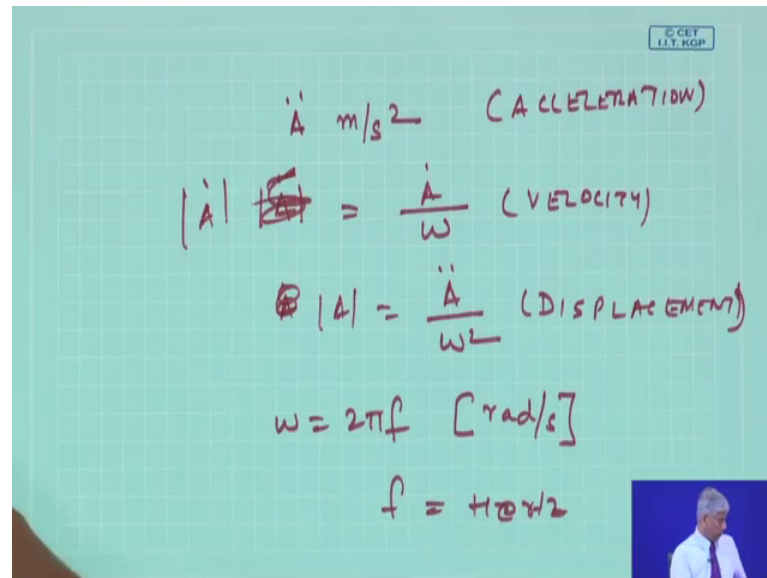 © CET
I.I.T. KGP
Ä m/s² (ACCLEZERATION)
|Ȧ| = Ȧ/ω (VELOCITY)
|A| = Ä/ω² (DISPLACEMENT)
ω = 2πf [rad/s]
f =